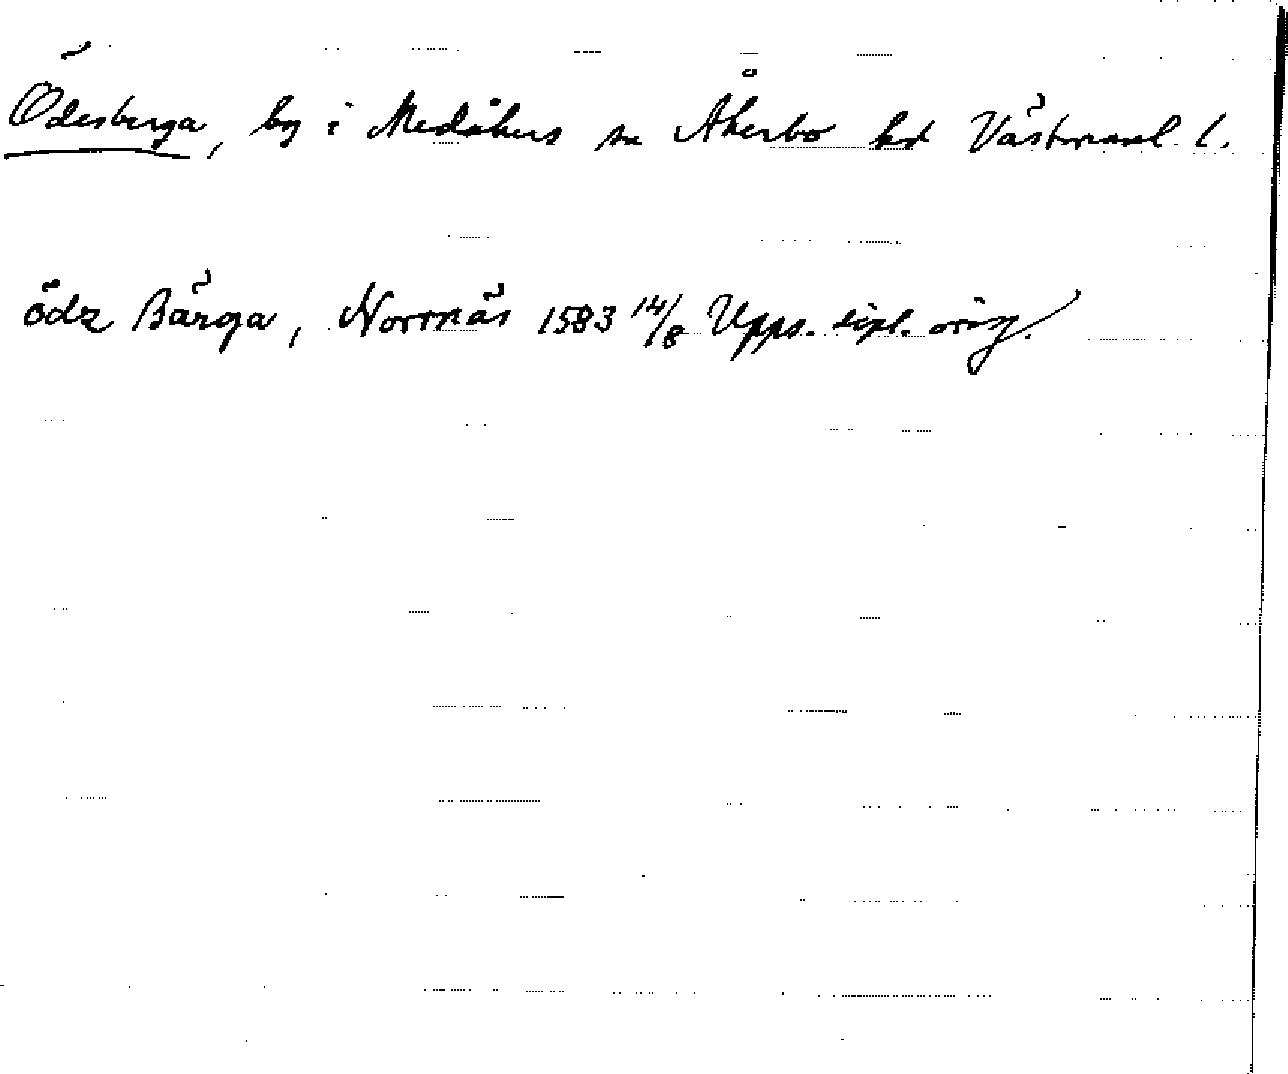 Ödesberga, by i Medåkers sn Åkerbo hd Västmanl. l.
ödz Bärga, Norrnäs 1583 14/8 Upps. dipl. orig.